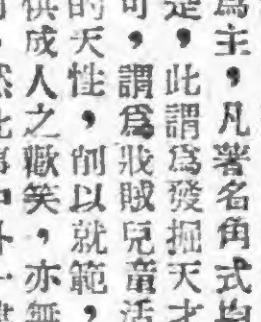 爲主，凡著名角式均
是，此謂爲發掘天才
可，謂爲戕賊兒童活
的天性，削以就範，
供成人之歡笑，亦無